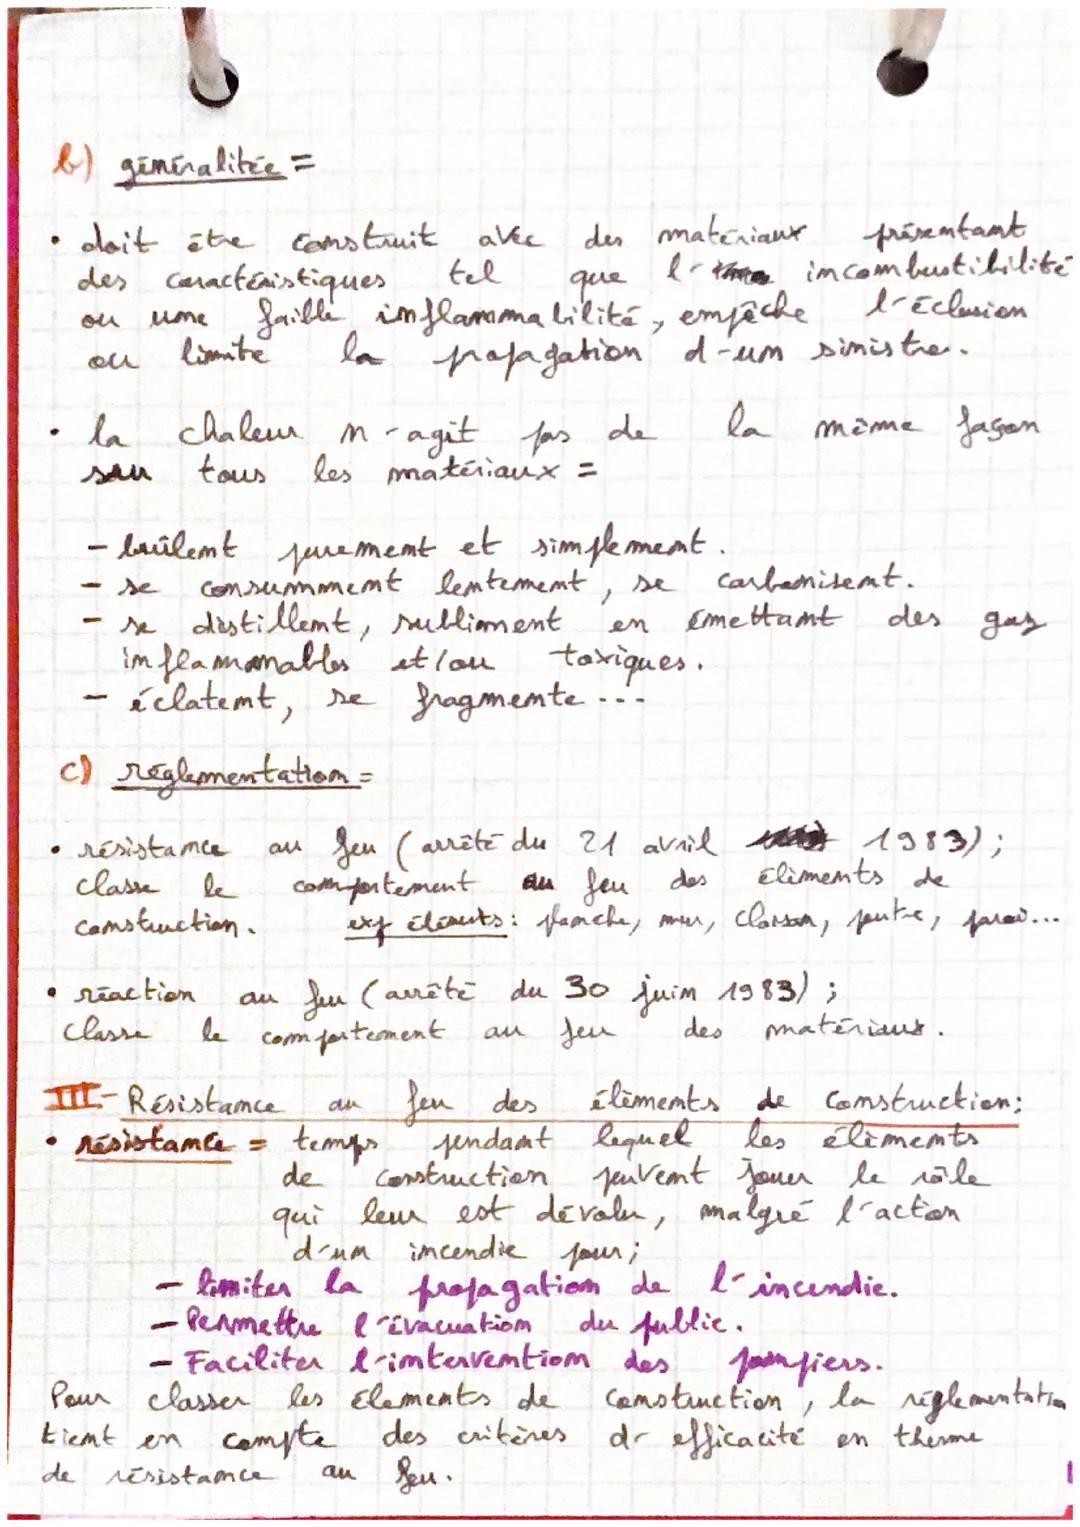 b) généralitée =
• doit être construit avec des matériaux présentant
des caractéristiques tel que l'incombustibilité
ou une faible inflammabilité, empêche l'éclusion
ou limite la propagation d'un sinistre.
• la chaleur n'agit pas de la même façon
sur tous les matériaux =
- brûlent purement et simplement.
- se consumment lentement, se carbonisent.
- se distillent, subliment en émettant des gaz
inflammables et/ou toxiques.
- éclatent, se fragmente ...
c) réglementation =
• résistance au feu (arrêté du 21 avril 1983) ;
classe le comportement au feu des élèments de
construction. exp éléments : planche, mur, cloison, poutre, paroi...
• réaction au feu (arrêté du 30 juin 1983) ;
classe le comportement au feu des matériaux.
III- Résistance au feu des élèments de construction :
• résistance = temps pendant lequel les élèments
de construction peuvent jouer le rôle
qui leur est dévolu, malgré l'action
d'un incendie pour ;
- limiter la propagation de l'incendie.
- Permettre l'évacuation du public.
- Faciliter l'intervention des pompiers.
Pour classer les élements de construction, la réglementation
tient en compte des critères d'efficacité en therme
de résistance au feu.